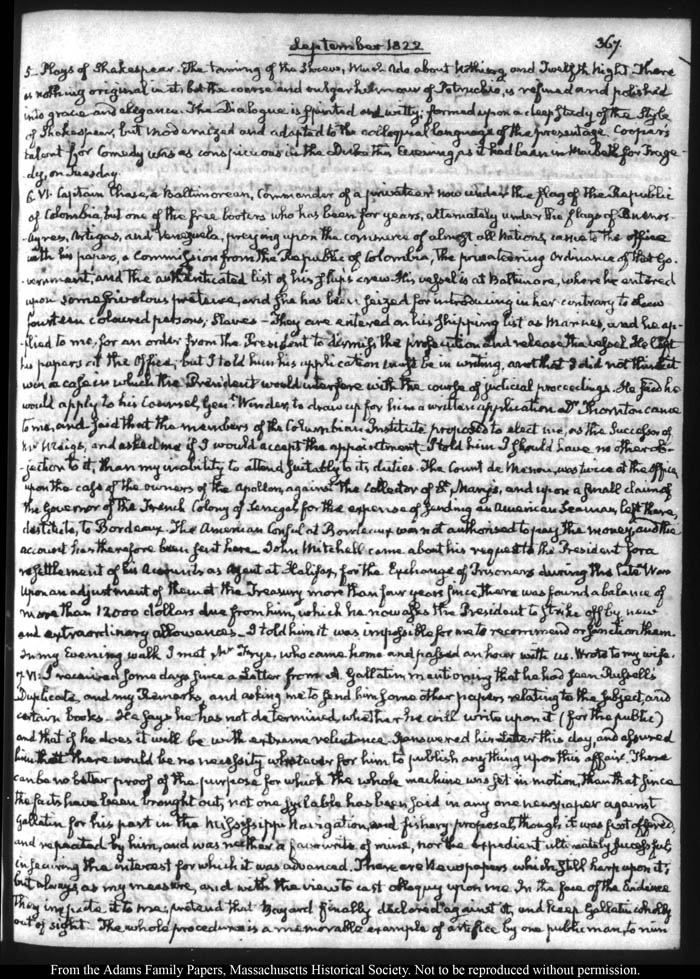 September 1822
367.
5. Plays of Shakespear. The taming of the Shrew, Much Ado about Nothing and Twelfth Night. There
is nothing original in it; but the coarse and vulgar humour of Petruchio, is refined and polished
into grace and elegance. The Dialogue is spirited and witty; formed upon a deep Study of the Style
of Shakespear, but modernized and adapted to the colloquial language of the present age. Cooper's
talent for Comedy was as conspicuous in the Duke this Evening, as it had been in Macbeth for Trage-
dy, on Tuesday.
6. VI. Captain Chase, a Baltimorean, Commander of a privateer now under the flag of the Republic
of Colombia, but one of the free booters who has been for years, alternately under the flags of Buenos-
Ayres, Artigas, and Venezuela, preying upon the commerce of almost all Nations, came to the office
with his papers, a Commission from the Republic of Colombia, the privateering Ordinance of that Go-
vernment, and the authenticated list of his ship's crew. His vessel is at Baltimore, where he entered
upon some frivolous pretence, and she has been seized for introducing in her contrary to Law
fourteen coloured persons, Slaves — They are entered on his shipping list as Marines, and he ap-
plied to me, for an order from the President to dismiss the prosecution and release the vessel. He left
his papers at the Office; but I told him his application must be in writing, and that I did not think it
was a case in which the President would interfere with the course of judicial proceedings. He said he
would apply to his Counsel, Genl. Winder, to draw up for him a written application. Dr. Thornton came
to me, and said that the members of the Columbian Institute proposed to elect me, as the Successor of
and asked me if I would accept the appointment. I told him I should have no other ob-
jection to it, than my inability to attend suitably to its duties. The Count de Menou, was twice at the office,
upon the case of the owners of the Apollon, against the Collector of St. Mary's, and upon a small claim of
the Governor of the French Colony of Senegal for the expense of sending an American Seaman, left there,
destitute, to Bordeaux. The American Consul at Bordeaux was not authorised to pay the money, and the
account has therefore been sent here. John Mitchell came about his request to the President for a
resettlement of his Accounts as Agent at Halifax, for the Exchange of Prisoners during the late War.
Upon an adjustment of them at the Treasury more than four years since, there was found a balance of
more than 12000 dollars due from him, which he now asks the President to strike off by new
and extraordinary allowances. I told him it was impossible for me to recommend or sanction them.
In my Evening walk I met Mr Frye, who came home and passed an hour with us. Wrote to my wife.
7. VI: I received some days since a Letter from A. Gallatin mentioning that he had seen Russell's
Duplicate, and my Remarks, and asking me to send him some other papers relating to the subject, and
certain books. He says he has not determined whether he will write upon it (for the public)
and that if he does it will be with extreme reluctance. I answered his Letter this day, and assured
him that there would be no necessity whatever for him to publish any thing upon this affair. There
can be no better proof of the purpose for which the whole machine was set in motion, than that since
the facts have been brought out, not one syllable has been said in any one newspaper against
Gallatin for his part in the Mississippi Navigation, and fishery proposal, though it was first offered,
and repeated by him, and was neither a favourite of mine, nor the expedient ultimately successful,
in securing the interest for which it was advanced. There are Newspapers which still harp upon it;
but always as my measure, and with the view to cast obloquy upon me. In the face of the Evidence
they impute it to me; pretend that Bayard finally declared against it, and keep Gallatin wholly
out of sight. The whole procedure is a memorable example of artifice by one public man, to ruin
From the Adams Family Papers, Massachusetts Historical Society. Not to be reproduced without permission.